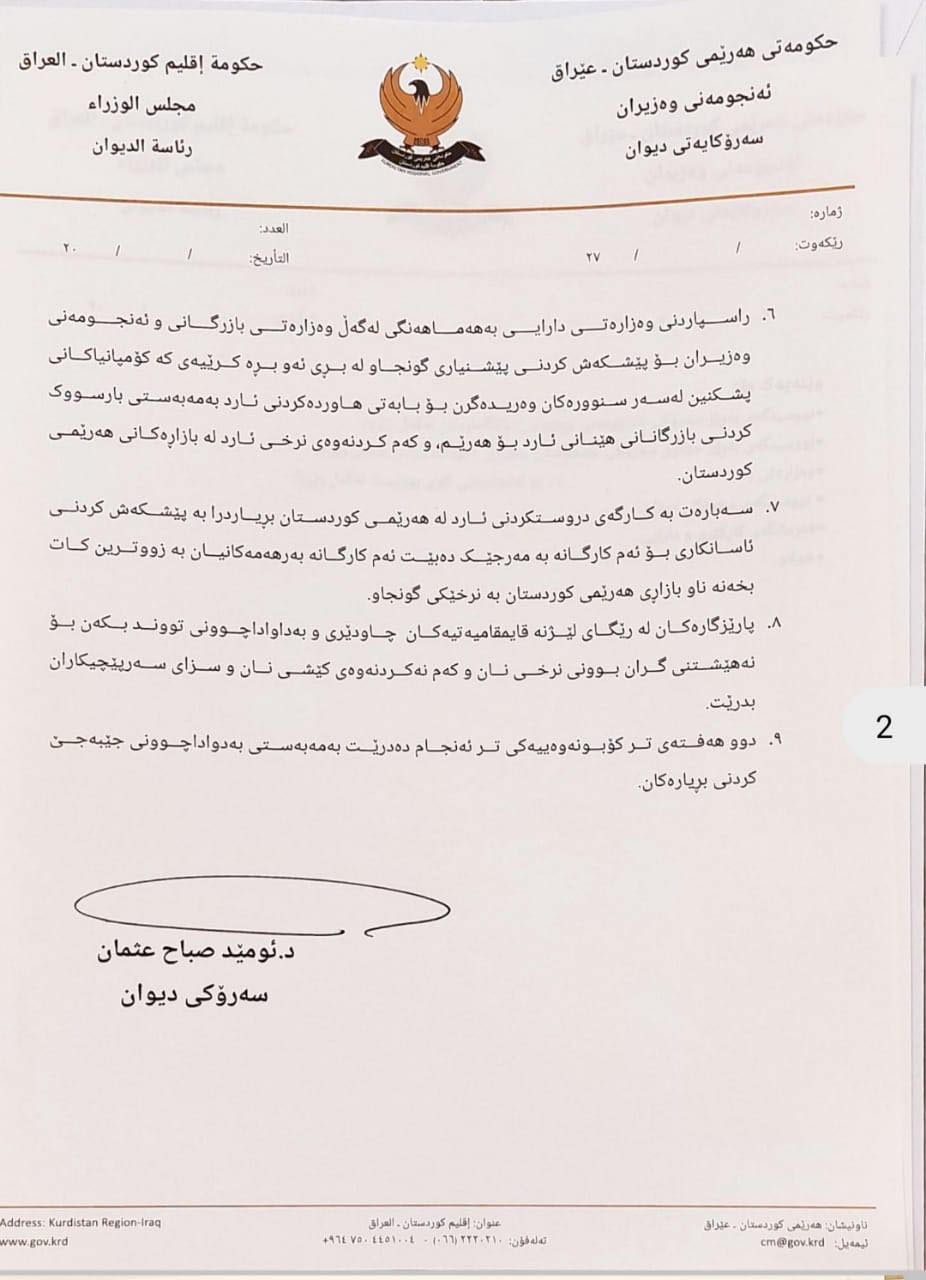 حکومەتی هەرێمی کوردستان ـ عێراق
ئەنجومەنی وەزیران
سەرۆکایەتی دیوان
حكومة إقليم كوردستان ـ العراق
مجلس الوزراء
رئاسة الديوان
KURDISTAN REGIONAL GOVERNMENT
ژمارە:
رێکەوت: / / ٢٧
العدد:
التأريخ: / / ٢٠
٦. راسپاردنی وەزارەتی دارایی بەهەماهەنگی لەگەڵ وەزارەتی بازرگانی و ئەنجومەنی
وەزیران بۆ پێشکەش کردنی پێشنیاری گونجاو لە بری ئەو برە کرێیەی کە کۆمپانیاکانی
پشکنین لەسەر سنوورەکان وەریدەگرن بۆ بابەتی هاوردەکردنی ئارد بەمەبەستی بارسووک
کردنی بازرگانانی هێنانی ئارد بۆ هەرێم، و کەم کردنەوەی نرخی ئارد لە بازاڕەکانی هەرێمی
کوردستان.
٧. سەبارەت بە کارگەی دروستکردنی ئارد لە هەرێمی کوردستان بڕیاردرا بە پێشکەش کردنی
ئاسانکاری بۆ ئەم کارگانە بە مەرجێک دەبێت ئەم کارگانە بەرهەمەکانیان بە زووترین کات
بخەنە ناو بازاڕی هەرێمی کوردستان بە نرخێکی گونجاو.
٨. پارێزگارەکان لە رێگای لێژنە قایمقامیەتیەکان چاودێری و بەداواداچوونی تووند بکەن بۆ
نەهێشتنی گران بوونی نرخی نان و کەم نەکردنەوەی کێشی نان و سزای سەرپێچیکاران
بدرێت.
٩. دوو هەفتەی تر کۆبونەوەییەکی تر ئەنجام دەدرێت بەمەبەستی بەدواداچوونی جێبەجێ
کردنی بڕیارەکان.
2
د.ئومێد صباح عثمان
سەرۆکی دیوان
ناونیشان: هەرێمی کوردستان ـ عێراق
ئیمەیل: cm@gov.krd
عنوان: إقليم كوردستان ـ العراق
تەلەفۆن: ٢٢٢٠٢١٠ (٠٦٦) - ٤٤٥١٠٠٤ ٧٥٠ ٩٦٤+
Address: Kurdistan Region-Iraq
www.gov.krd